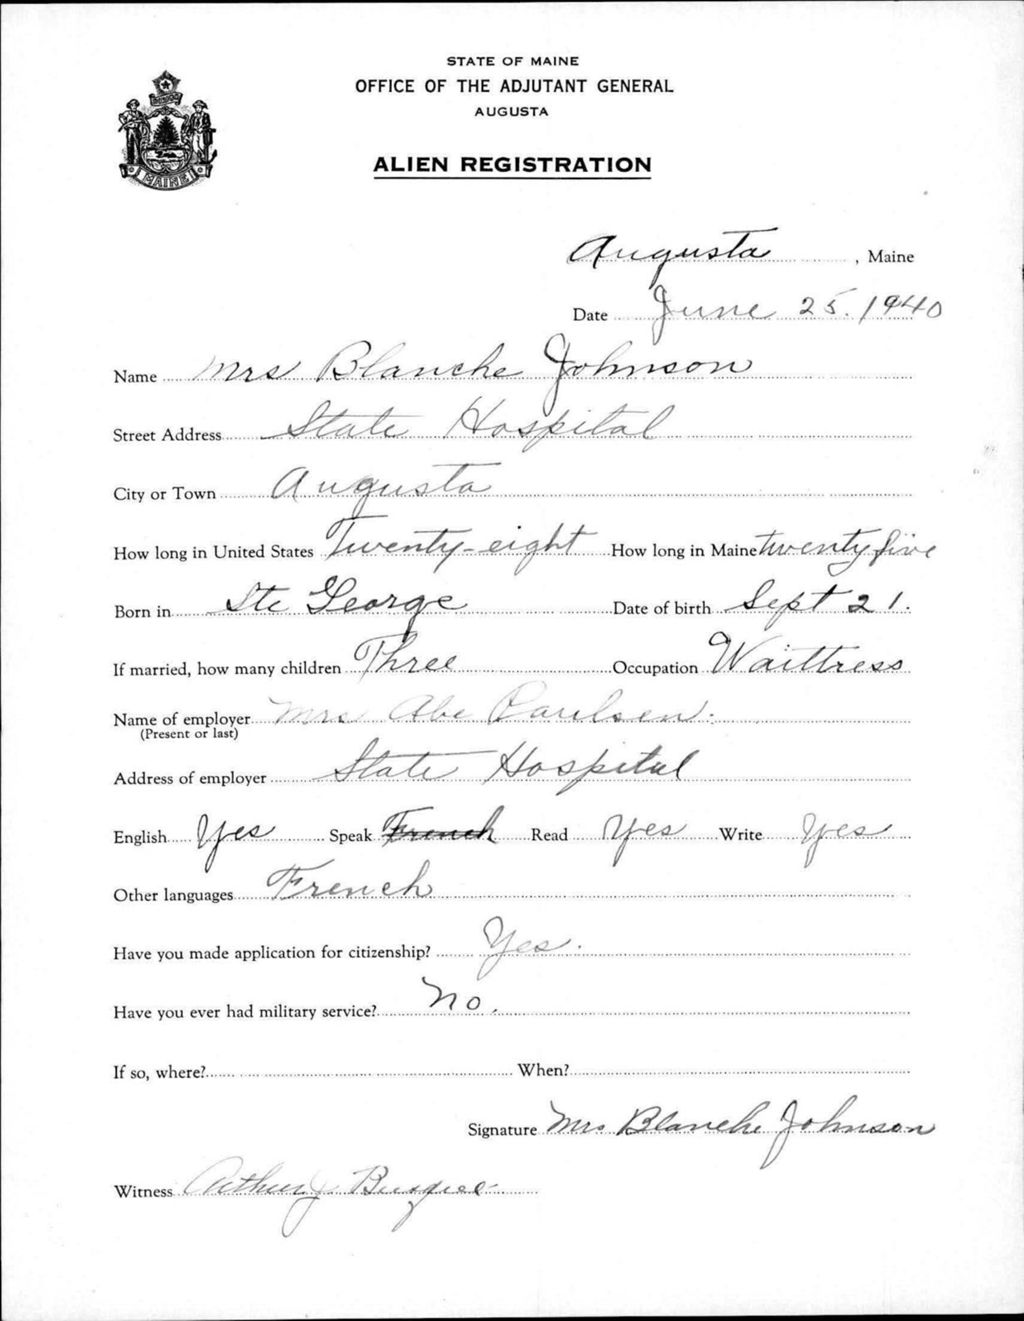 STATE OF MAINE
OFFICE OF THE ADJUTANT GENERAL
AUGUSTA
ALIEN REGISTRATION
MAINE
Augusta, Maine
Date June 25. 1940
Name Mrs Blanche Johnson
Street Address State Hospital
City or Town Augusta
How long in United States Twenty-eight How long in Maine twenty five
Born in Ste George Date of birth Sept 21.
If married, how many children Three Occupation Waittress
Name of employer Mrs Abe Paulsen.
(Present or last)
Address of employer State Hospital
English Yes Speak French Read Yes Write Yes
Other languages French
Have you made application for citizenship? Yes.
Have you ever had military service? No.
If so, where? When?
Signature Mrs Blanche Johnson
Witness Arthur J.